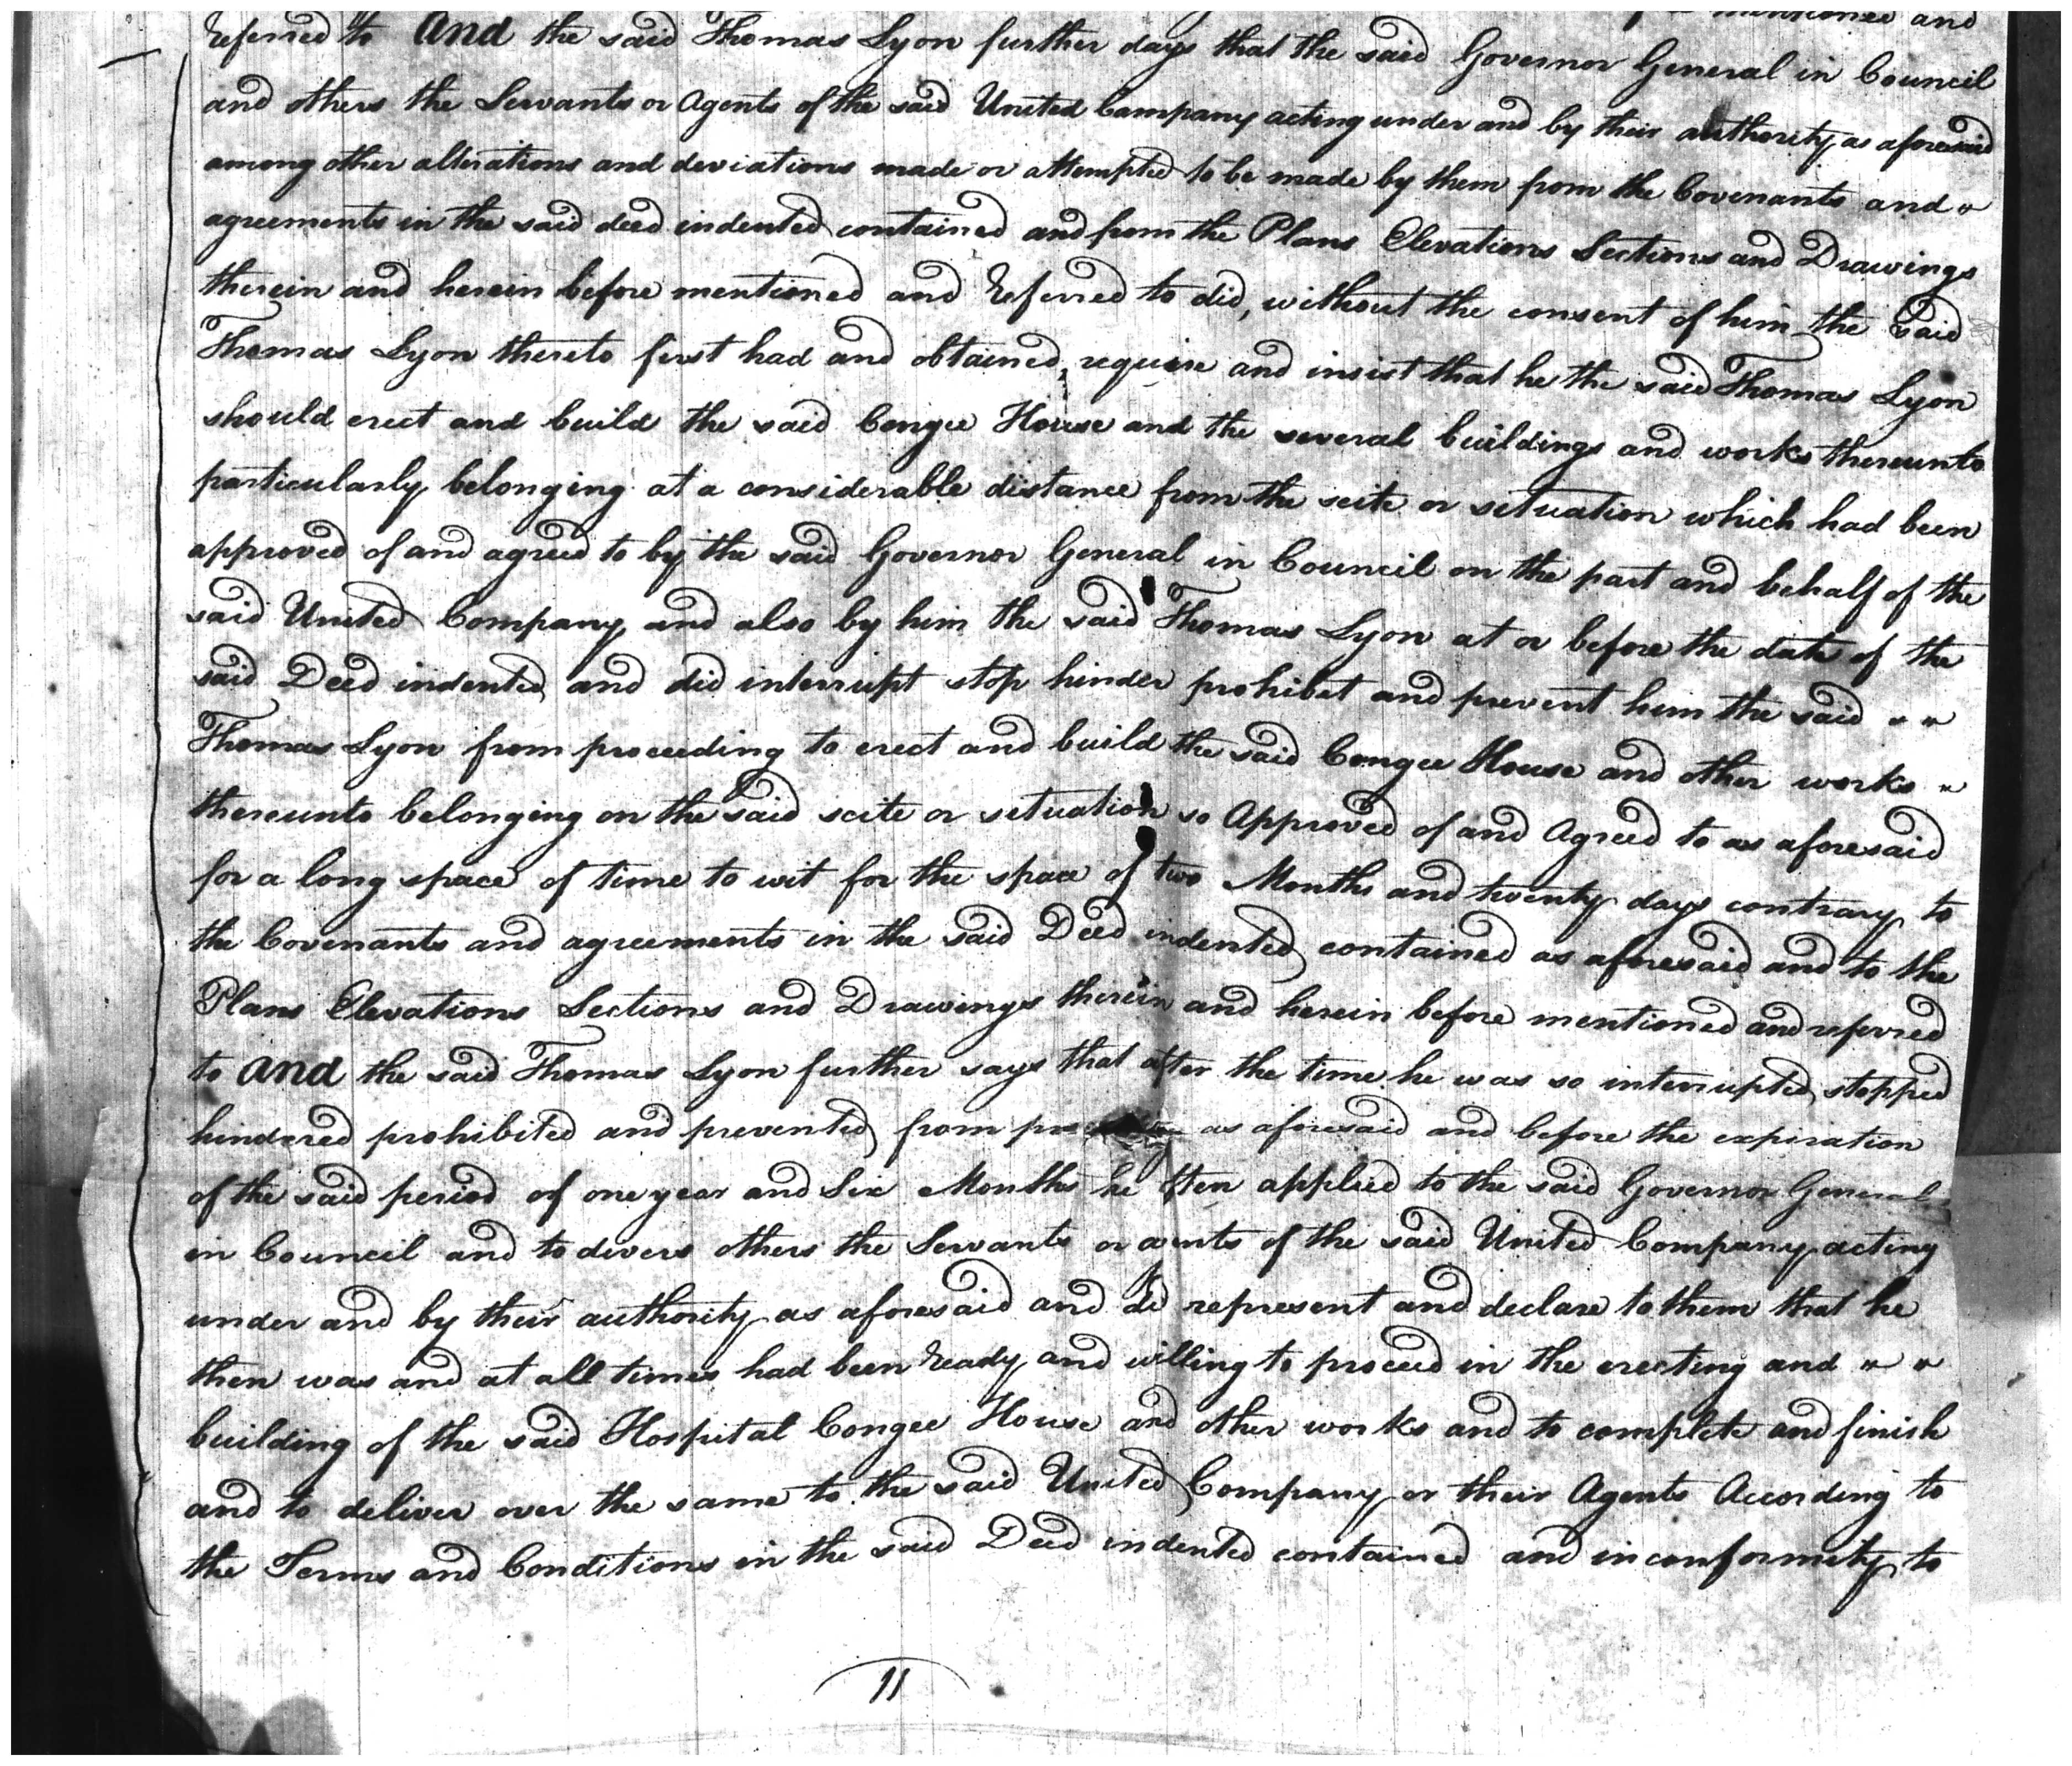 mentioned and
referred to And the said Thomas Lyon further says that the said Governor General in Council
and others the Servants or Agents of the said United Company acting under and by their authority as aforesaid
among other alterations and deviations made or attempted to be made by them from the Covenants and "
agreements in the said deed indented contained and from the Plans Elevations Sections and Drawings
therein and herein before mentioned and referred to did, without the consent of him the said
Thomas Lyon thereto first had and obtained, require and insist that he the said Thomas Lyon
should erect and build the said Congee House and the several buildings and works thereunto
particularly belonging at a considerable distance from the scite or situation which had been
approved of and agreed to by the said Governor General in Council on the part and behalf of the
said United Company and also by him the said Thomas Lyon at or before the date of the
said Deed indented and did interrupt stop hinder prohibit and prevent him the said " "
Thomas Lyon from proceeding to erect and build the said Congee House and other works "
thereunto belonging on the said scite or situation so Approved of and Agreed to as aforesaid
for a long space of time to wit for the space of two Months and twenty days contrary to
the Covenants and agreements in the said Deed indented contained as aforesaid and to the
Plans Elevations Sections and Drawings therein and herein before mentioned and referred
to And the said Thomas Lyon further says that after the time he was so interrupted stopped
hindered prohibited and prevented from as aforesaid and before the expiration
of the said period of one year and Six Months he often applied to the said Governor General
in Council and to divers others the Servants or agents of the said United Company acting
under and by their authority as aforesaid and did represent and declare to them that he
then was and at all times had been ready and willing to proceed in the erecting and " "
building of the said Hospital Congee House and other works and to complete and finish
and to deliver over the same to the said United Company or their Agents According to
the Terms and Conditions in the said Deed indented contained and in conformity to
11